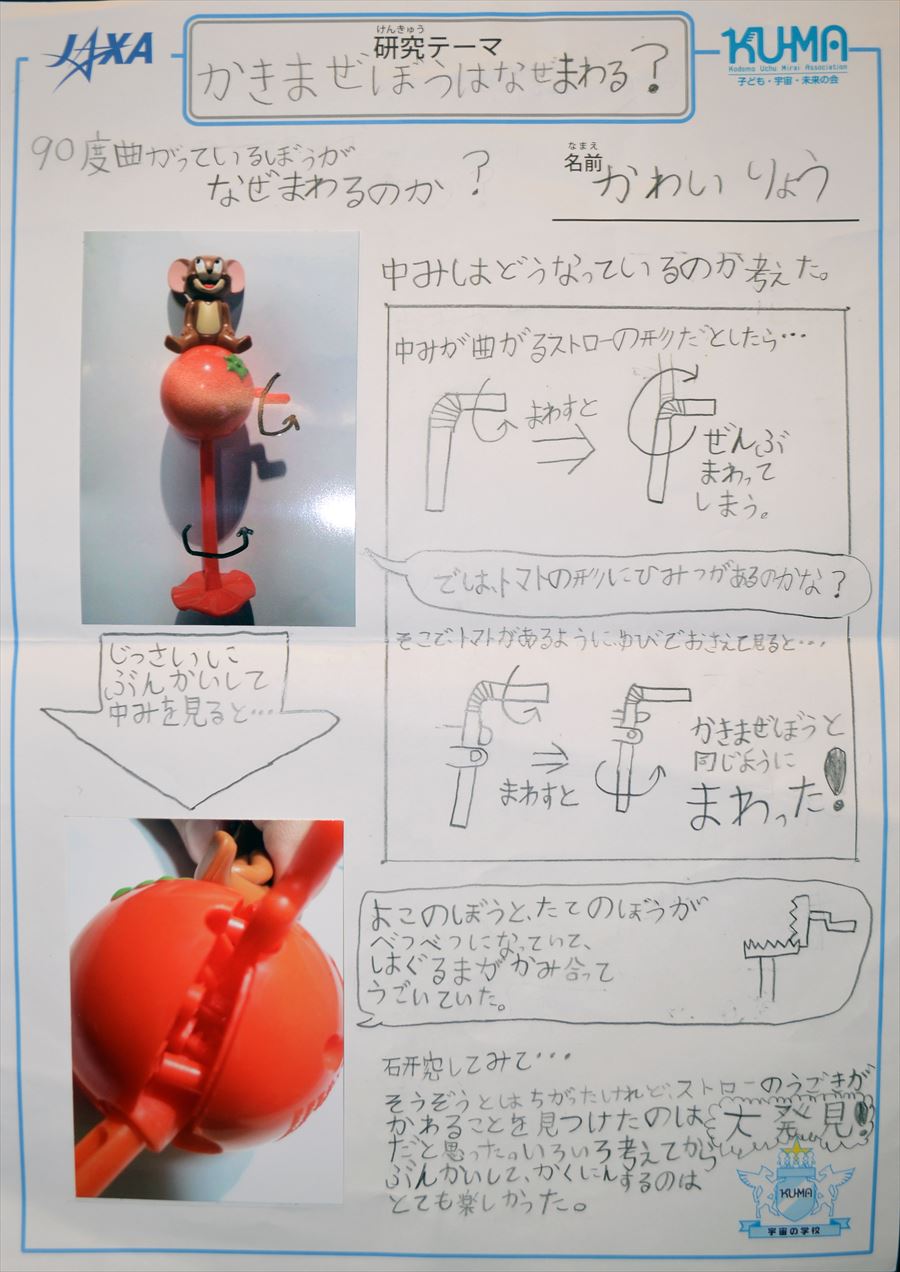 JAXA
けんきゅう
研究テーマ
KU-MA
Kodomo Uchu Mirai Association
子ども・宇宙・未来の会
かきまぜぼうはなぜまわる?
90度曲がっているぼうが
なぜまわるのか?
なまえ
名前
かわい りょう
中みはどうなっているのか考えた。
中みが曲がるストローの形だとしたら…
まわすと
ぜんぶ
まわって
しまう。
では、トマトの形にひみつがあるのかな?
そこでトマトがあるように、ゆびでおさえて見ると…
まわすと
かきまぜぼうと
同じように
まわった!
じっさいに
ぶんかいして
中みを見ると…
よこのぼうと、たてのぼうが
べつべつになっていて、
はぐるまがかみ合って
うごいていた。
研究してみて…
そうぞうとはちがたけれど、ストローのうごきが
かわることを見つけたのは大発見!
だと思った。いろいろ考えてから
ぶんかいして、かくにんするのは
とても楽しかった。
KU-MA
宇宙の学校